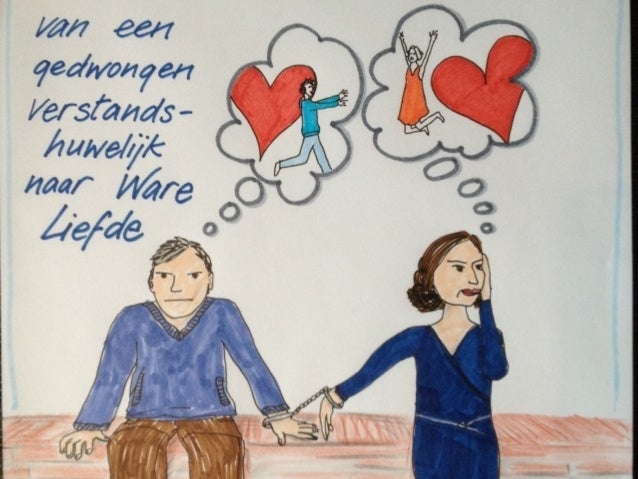 van een
gedwongen
verstands-
huwelijk
naar Ware
Liefde